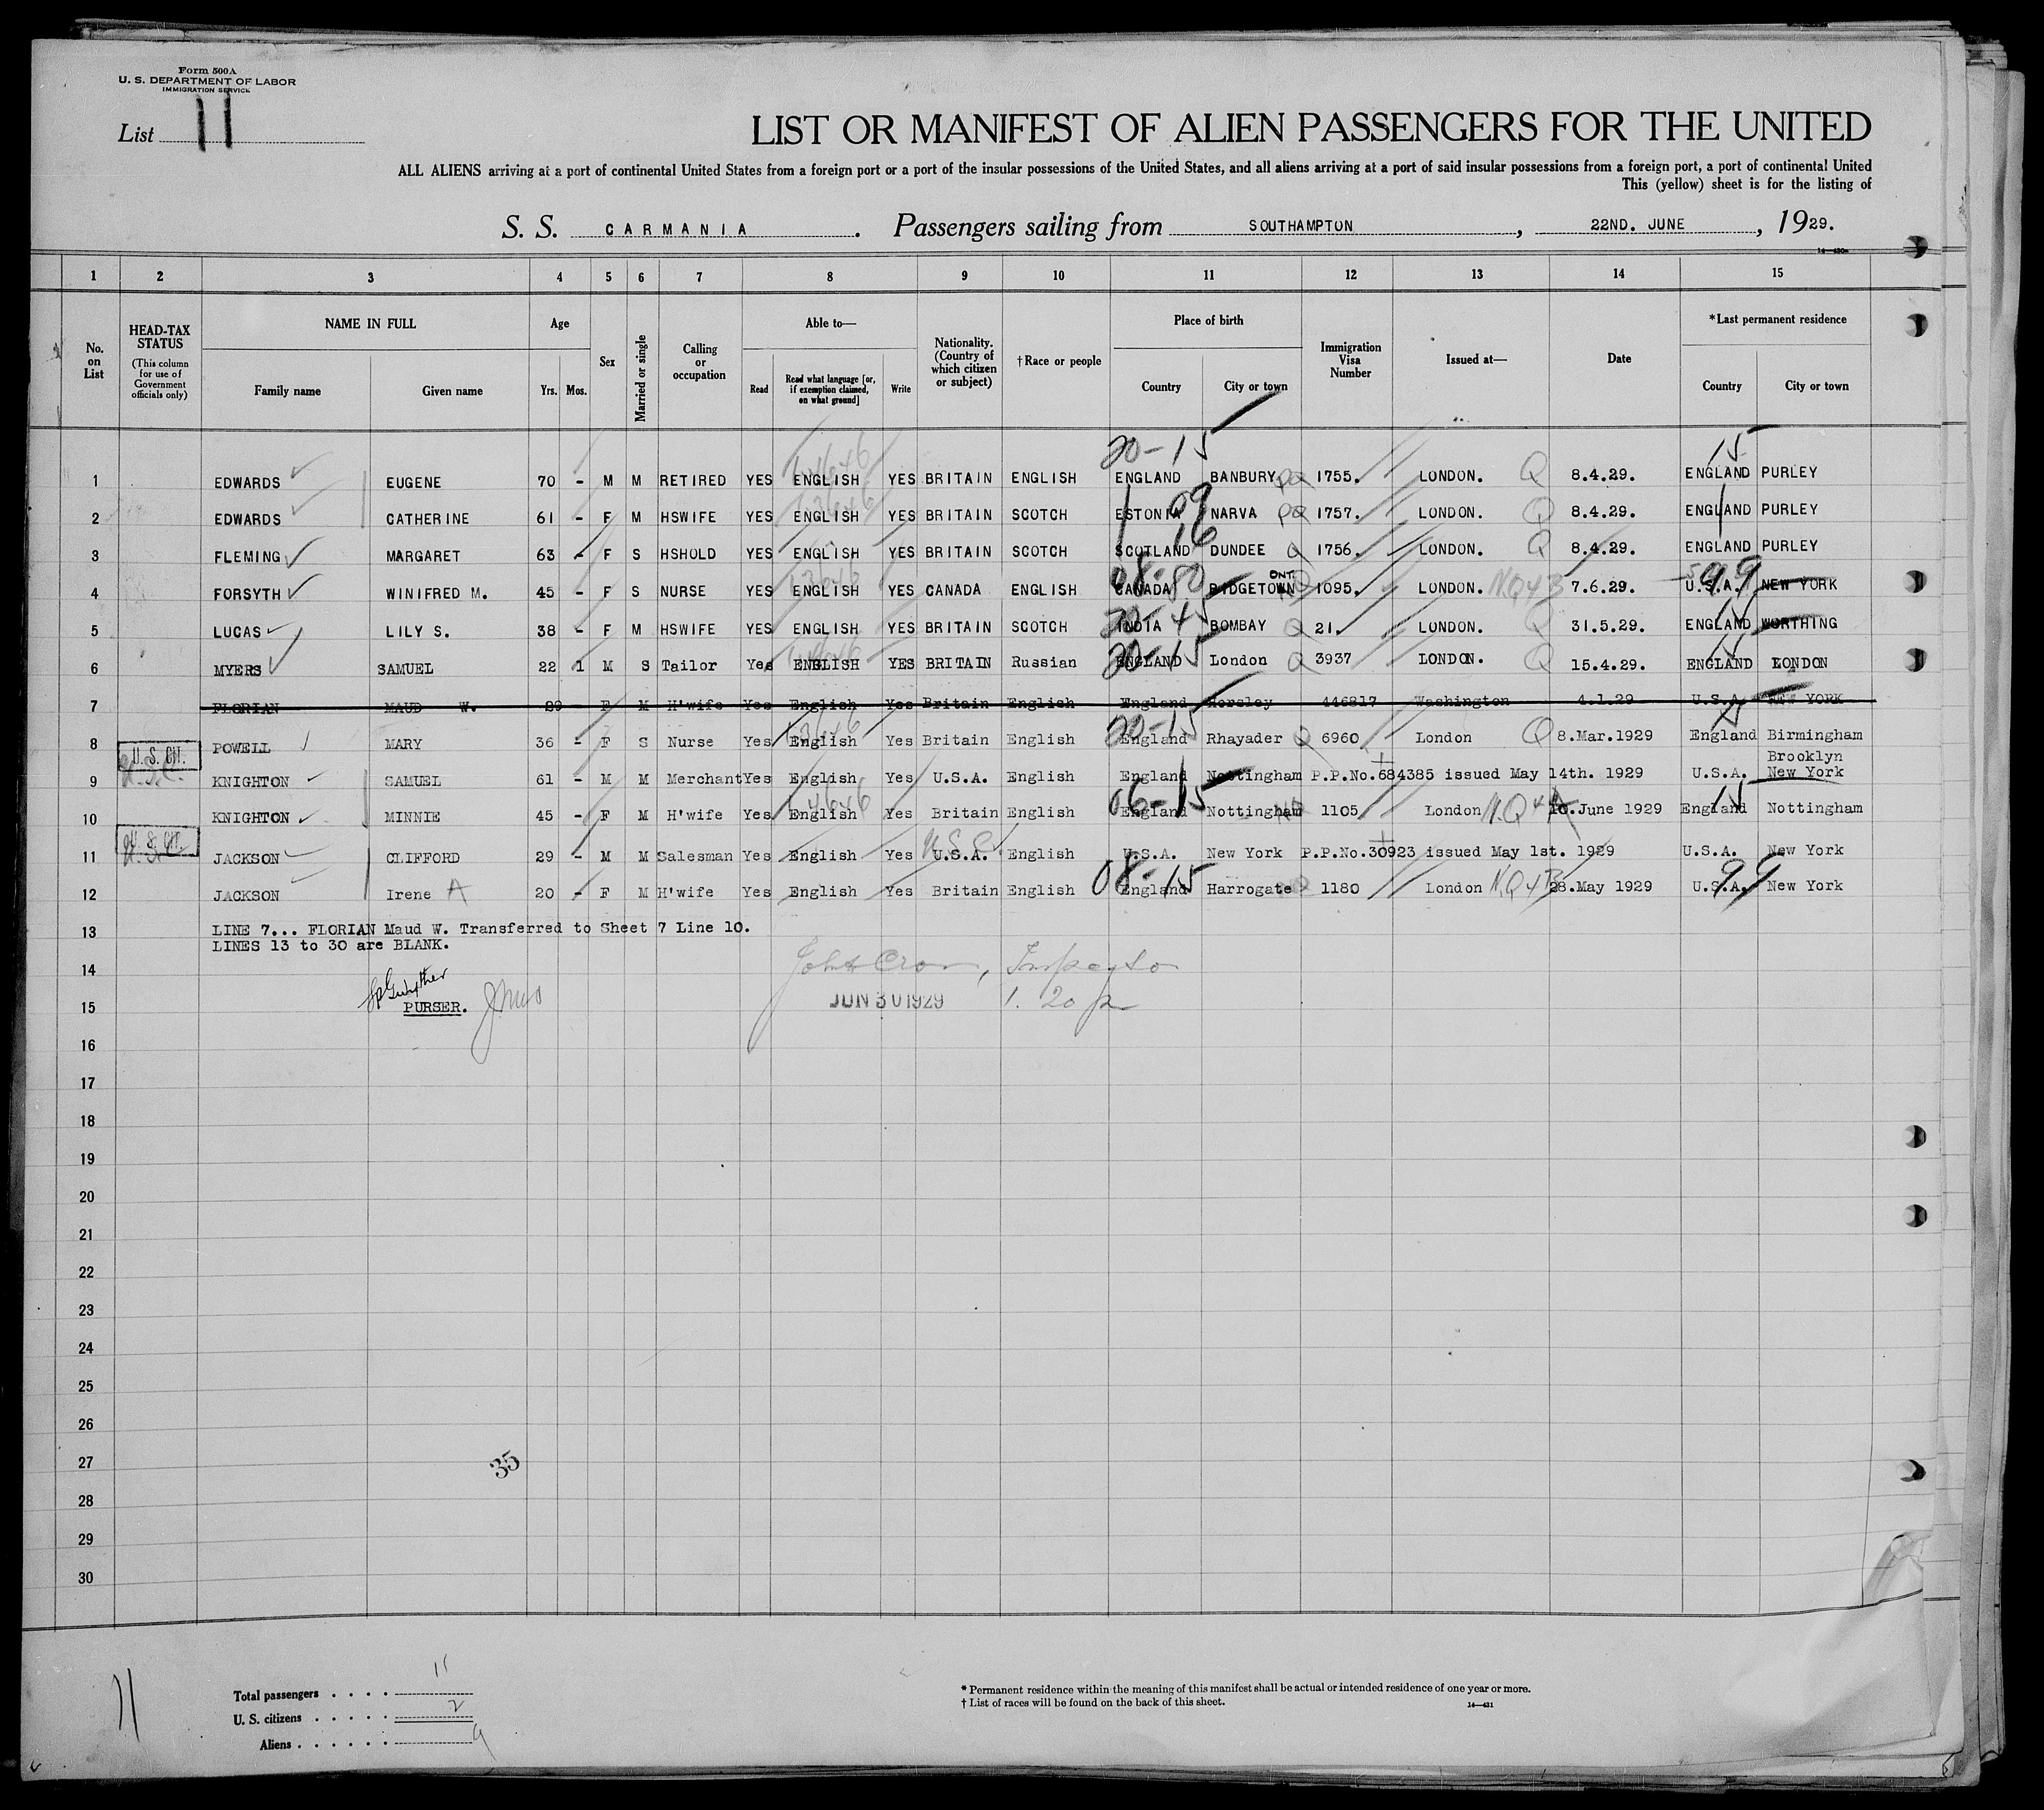 Form 500A
U. S. DEPARTMENT OF LABOR
IMMIGRATION SERVICE
List 11
LIST OR MANIFEST OF ALIEN PASSENGERS FOR THE UNITED
ALL ALIENS arriving at a port of continental United States from a foreign port or a port of the insular possessions of the United States, and all aliens arriving at a port of said insular possessions from a foreign port, a port of continental United
This (yellow) sheet is for the listing of
S. S. CARMANIA. Passengers sailing from SOUTHAMPTON, 22ND. JUNE, 1929.
14-430
1 2 3 4 5 6 7 8 9 10 11 12 13 14 15
No. on List
HEAD-TAX STATUS
(This column for use of Government officials only)
NAME IN FULL
Family name Given name
Age
Yrs. Mos.
Sex
Married or single
Calling or occupation
Able to—
Read
Read what language [or, if exemption claimed, on what ground]
Write
Nationality. (Country of which citizen or subject)
†Race or people
Place of birth
Country City or town
Immigration Visa Number
Issued at—
Date
*Last permanent residence
Country City or town
20-15 15
1 EDWARDS EUGENE 70 - M M RETIRED YES ENGLISH YES BRITAIN ENGLISH ENGLAND BANBURY 1755. LONDON. Q 8.4.29. ENGLAND PURLEY
2 EDWARDS CATHERINE 61 - F M HSWIFE YES ENGLISH YES BRITAIN SCOTCH ESTONIA 09 NARVA PQ 1757. LONDON. Q 8.4.29. ENGLAND PURLEY
3 FLEMING MARGARET 63 - F S HSHOLD YES ENGLISH YES BRITAIN SCOTCH SCOTLAND 16 DUNDEE Q 1756. LONDON. Q 8.4.29. ENGLAND PURLEY
4 FORSYTH WINIFRED M. 45 - F S NURSE YES ENGLISH YES CANADA ENGLISH CANADA 08-80 RIDGETOWN ONT. 1095. LONDON. NQ4B 7.6.29. U.S.A. 99 NEW YORK
5 LUCAS LILY S. 38 - F M HSWIFE YES ENGLISH YES BRITAIN SCOTCH INDIA BOMBAY Q 21. LONDON. Q 31.5.29. ENGLAND 15 WORTHING
6 MYERS SAMUEL 22 1 M S Tailor Yes ENGLISH YES BRITAIN Russian 20-15 ENGLAND London Q 3937 LONDON. Q 15.4.29. ENGLAND 15 LONDON
7 FLORIAN MAUD W. 29 F M H'wife Yes English Yes Britain English England Horsley 446817 Washington 4.1.29 U.S.A. NEW YORK
8 POWELL MARY 36 - F S Nurse Yes English Yes Britain English 20-15 England Rhayader Q 6960 London Q 8.Mar.1929 England 15 Birmingham
U.S. CIT.
U.S.C.
9 KNIGHTON SAMUEL 61 - M M Merchant Yes English Yes U.S.A. English England Nottingham P.P.No.684385 issued May 14th. 1929 U.S.A. Brooklyn New York
10 KNIGHTON MINNIE 45 - F M H'wife Yes English Yes Britain English 06-15 England Nottingham 1105 London N.Q4A 10.June 1929 England 15 Nottingham
U.S. CIT.
U.S.C.
11 JACKSON CLIFFORD 29 - M M Salesman Yes English Yes U.S.A. U.S.C. English U.S.A. New York P.P.No.30923 issued May 1st. 1929 U.S.A. New York
12 JACKSON Irene A 20 - F M H'wife Yes English Yes Britain English 08-15 England Harrogate 1180 London N.Q4B 28.May 1929 U.S.A. 99 New York
13 LINE 7... FLORIAN Maud W. Transferred to Sheet 7 Line 10.
LINES 13 to 30 are BLANK.
14
Inspector
15 PURSER. JUN 30 1929 1.20 p
16
17
18
19
20
21
22
23
24
25
26
27 35
28
29
30
11
Total passengers . . . . 11
U. S. citizens . . . . . 2
Aliens . . . . . . 9
* Permanent residence within the meaning of this manifest shall be actual or intended residence of one year or more.
† List of races will be found on the back of this sheet.
14—431